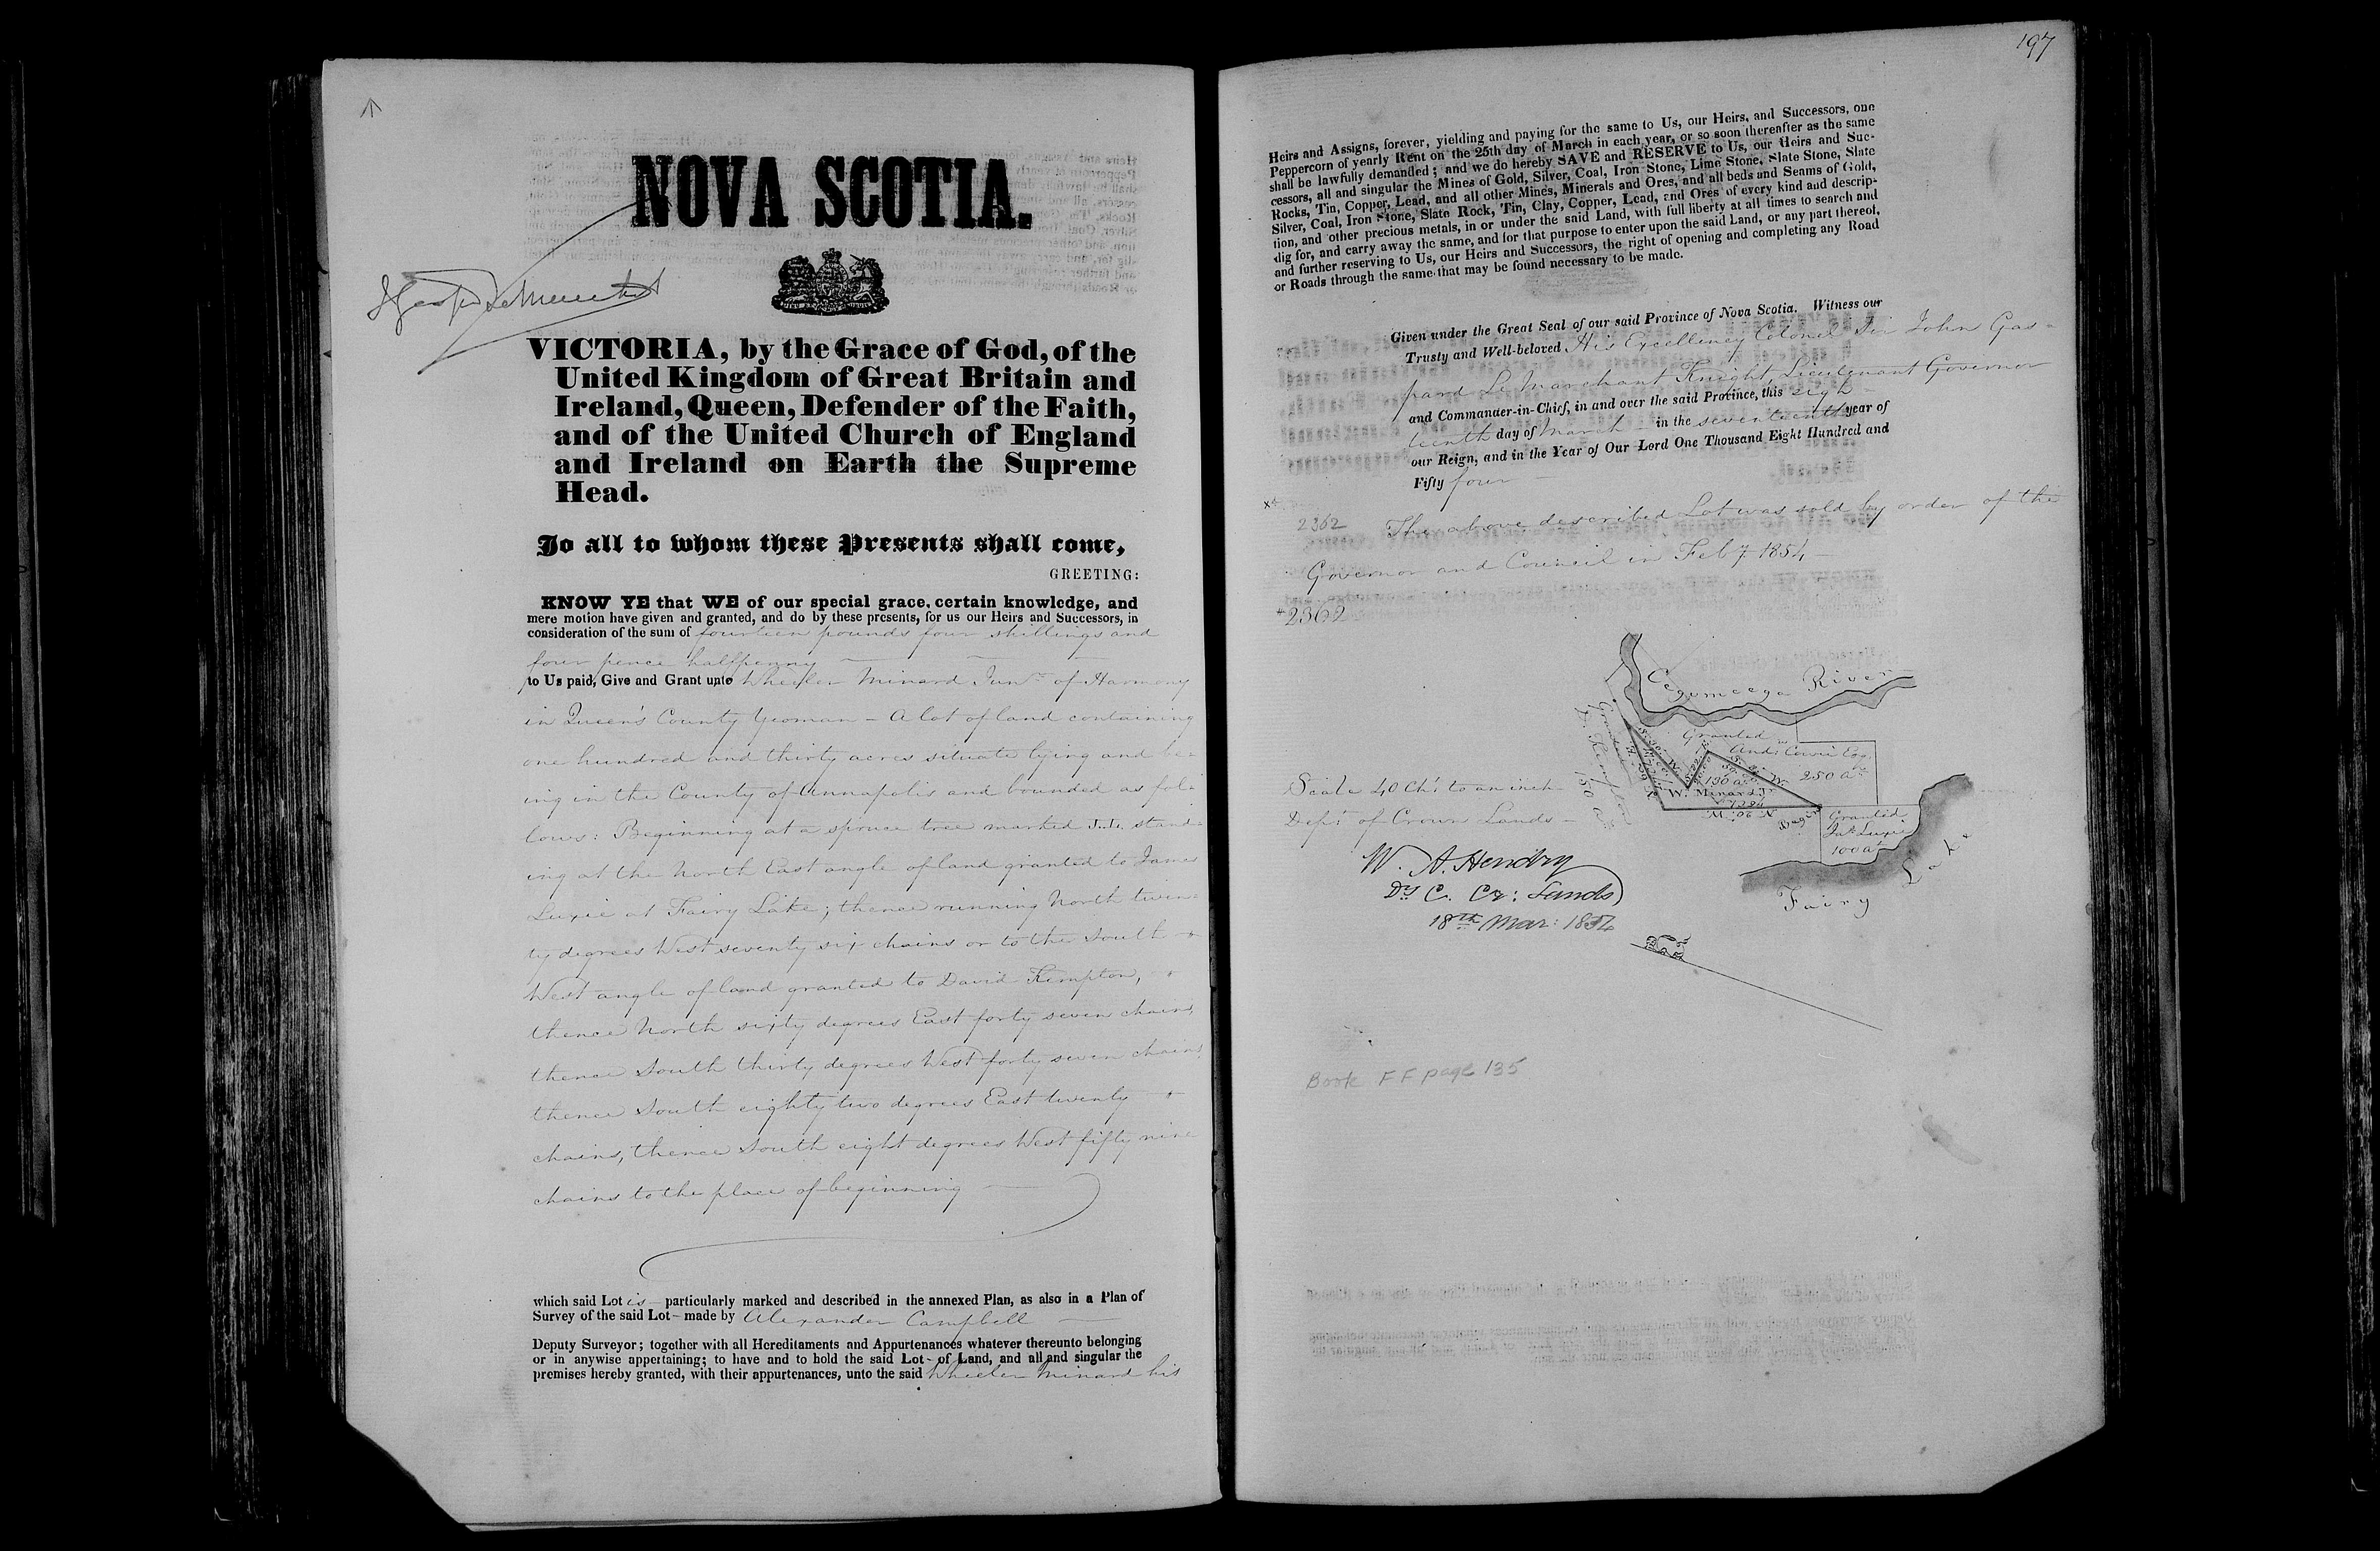 NOVA SCOTIA.
VICTORIA, by the Grace of God, of the
United Kingdom of Great Britain and
Ireland, Queen, Defender of the Faith,
and of the United Church of England
and Ireland on Earth the Supreme
Head.
To all to whom these Presents shall come,
GREETING:
KNOW YE that WE of our special grace, certain knowledge, and
mere motion have given and granted, and do by these presents, for us our Heirs and Successors, in
consideration of the sum of fourteen pounds four shillings and
four pence halfpenny
to Us paid, Give and Grant unto Wheeler Minard Junr of Harmony
in Queen's County Yeoman - A lot of land containing
one hundred and thirty acres situate lying and be-
ing in the County of Annapolis and bounded as fol-
lows: Beginning at a spruce tree marked J.L. stand-
ing at the North East angle of land granted to James
Luxie at Fairy Lake; thence running North twen-
ty degrees West seventy six chains or to the South
West angle of land granted to David Kempton,
thence North sixty degrees East forty seven chains,
thence South thirty degrees West forty seven chains,
thence South eighty two degrees East twenty
chains, thence South eight degrees West fifty nine
chains to the place of beginning
which said Lot is particularly marked and described in the annexed Plan, as also in a Plan of
Survey of the said Lot - made by Alexander Campbell
Deputy Surveyor; together with all Hereditaments and Appurtenances whatever thereunto belonging
or in anywise appertaining; to have and to hold the said Lot - of Land, and all and singular the
premises hereby granted, with their appurtenances, unto the said Wheeler Minard his
197
Heirs and Assigns, forever, yielding and paying for the same to Us, our Heirs, and Successors, one
Peppercorn of yearly Rent on the 25th day of March in each year, or so soon thereafter as the same
shall be lawfully demanded; and we do hereby SAVE and RESERVE to Us, our Heirs and Suc-
cessors, all and singular the Mines of Gold, Silver, Coal, Iron Stone, Lime Stone, Slate Stone, Slate
Rocks, Tin, Copper, Lead, and all other Mines, Minerals and Ores, and all beds and Seams of Gold,
Silver, Coal, Iron Stone, Slate Rock, Tin, Clay, Copper, Lead, and Ores of every kind and descrip-
tion, and other precious metals, in or under the said Land, with full liberty at all times to search and
dig for, and carry away the same, and for that purpose to enter upon the said Land, or any part thereof,
and further reserving to Us, our Heirs and Successors, the right of opening and completing any Road
or Roads through the same that may be found necessary to be made.
Given under the Great Seal of our said Province of Nova Scotia. Witness our
Trusty and Well-beloved His Excellency Colonel Sir John Gas-
pard Le Marchant Knight, Lieutenant Governor
and Commander-in-Chief, in and over the said Province, this eigh-
teenth day of March - in the seventeenth year of
our Reign, and in the Year of Our Lord One Thousand Eight Hundred and
Fifty four -
2362 The above described Lot was sold by order of the
Governor and Council in Feb 7 1854
2362
Cegumceega River
Granted
And: Cowie Esq
250 as
Granted
D. Kempton
150 as
130 as
W. Minard Jr
Granted
Jas Luxie
100 as
Fairy Lake
Scale 40 Chs to an inch
Dept of Crown Lands -
W. A. Hendry
Dy C. Cr: Lands
18th Mar: 1854
Book FF page 135